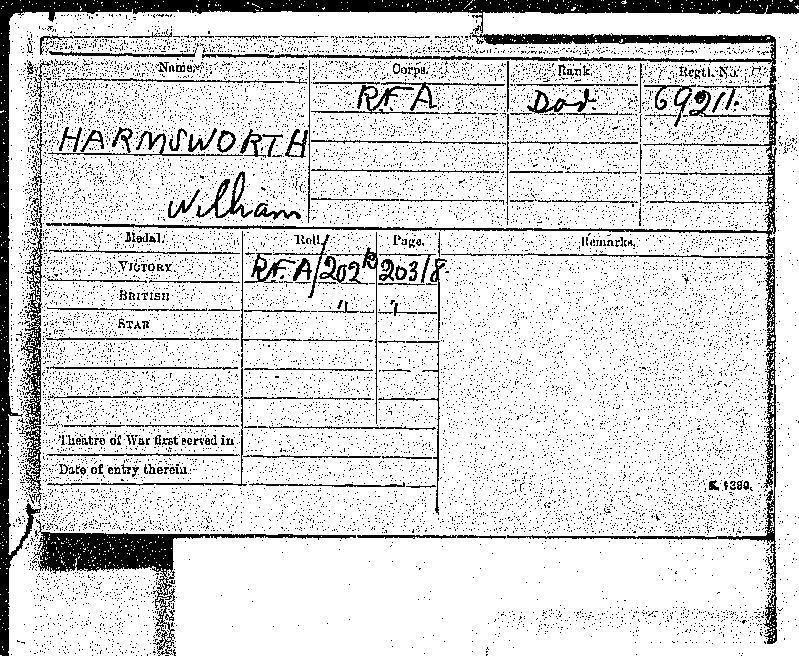 Name. Corps. Rank. Regtl. No.
R.F.A Dvr. 69211.
HARMSWORTH
William
Medal. Roll. Page. Remarks.
VICTORY RF.A/202B 20318.
BRITISH " "
STAR
Theatre of War first served in
Date of entry therein
K. 1380.